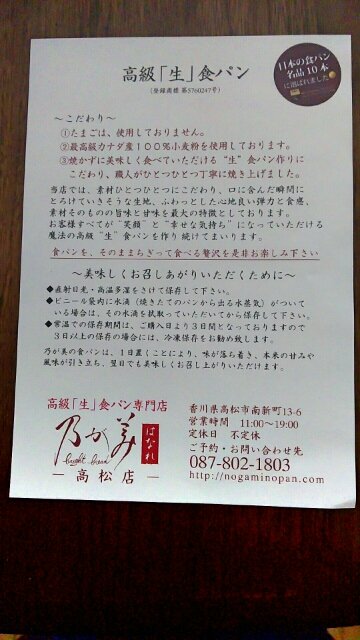 日本の食パン
名品10本
に選ばれました
高級「生」食パン
（登録商標 第5760247号）
～こだわり～
①たまごは、使用しておりません。
②最高級カナダ産100%小麦粉を使用しております。
③焼かずに美味しく食べていただける“生”食パン作りに
こだわり、職人がひとつひとつ丁寧に焼き上げました。
当店では、素材ひとつひとつにこだわり、口に含んだ瞬間に
とろけていきそうな生地、ふわっとした心地良い弾力と食感、
素材そのものの旨味と甘味を最大の特徴としております。
お客様すべてが“笑顔”と“幸せな気持ち”になっていただける
魔法の高級“生”食パンを作り続けてまいります。
食パンを、そのままちぎって食べる贅沢を是非お楽しみ下さい
～美味しくお召しあがりいただくために～
◆直射日光・高温多湿をさけて保存して下さい。
◆ビニール袋内に水滴（焼きたてのパンから出る水蒸気）がついて
いる場合は、その水滴を拭取っていただいてから保存して下さい。
◆常温での保存期間は、ご購入日より3日間となっておりますので
3日以上の保存の場合には、冷凍保存をお勧め致します。
乃が美の食パンは、1日置くことにより、味が落ち着き、本来の甘みや
風味が引き立ち、翌日でも美味しくお召し上がりいただけます。
高級「生」食パン専門店
乃が美
はなれ
bright bread
－高松店－
香川県高松市南新町13-6
営業時間 11:00～19:00
定休日 不定休
ご予約・お問い合わせ先
087-802-1803
http://nogaminopan.com